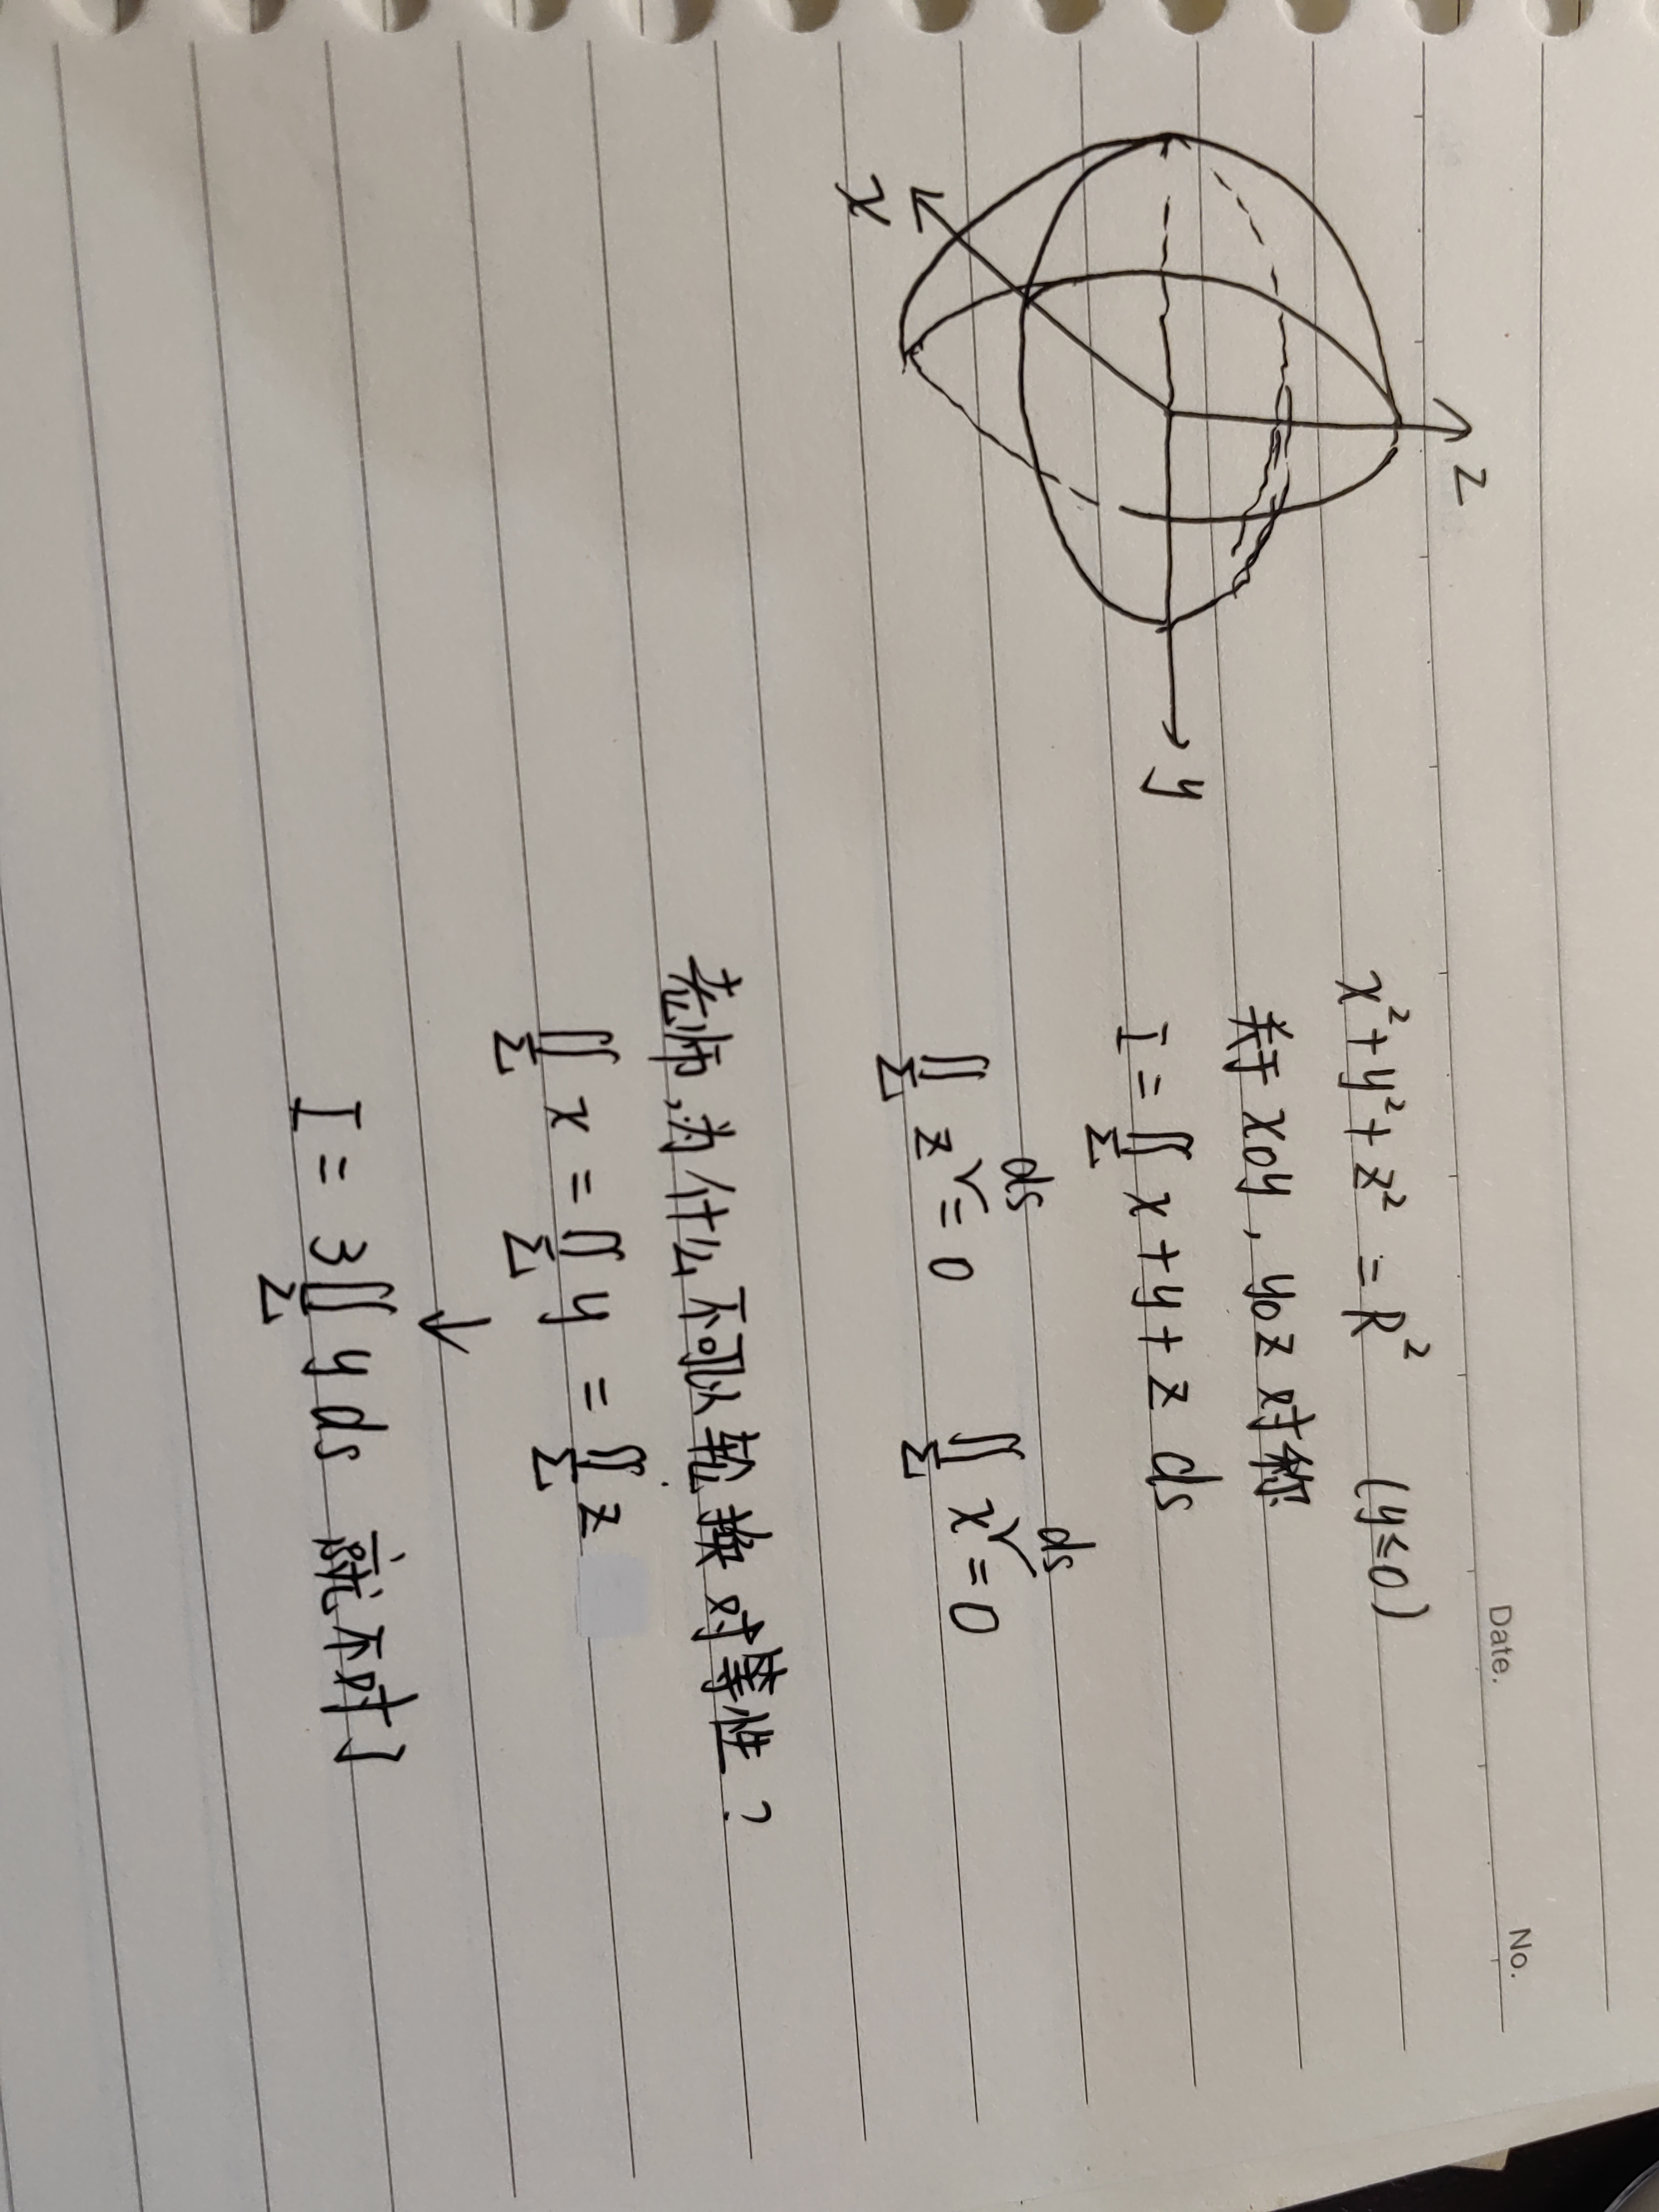 Date. No.
x²+y²+z² = R² (y≤0)
关于 xoy, yoz 对称
I = ∬ x+y+z ds
Σ
∬ z ds = 0 ∬ x ds = 0
Σ Σ
老师,为什么不可以轮换对等性?
∬ x = ∬ y = ∬ z
Σ Σ Σ
↓
I = 3∬ y ds 就不对]
Σ
z
y
x